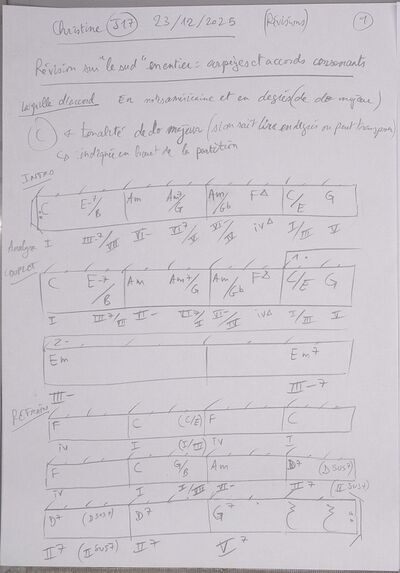 Christine J17 23/12/2025 (Révisions) 1
Révision sur "le sud" en entier = arpèges et accords consonants
laquille d'accord En notes américaine et en degrés (de do majeur)
C tonalité de do majeur (si on sait lire en degrés on peut transposer)
indiquée en haut de la partition
INTRO
C E-7/B Am Am7/G Am/Gb F△ C/E G
Analyse I III-7/VII VI- VI7/V VI-/IV iv△ I/III V
COUPLET
1-
C E-7/B Am Am7/G Am/Gb F△ C/E G
I III7/III VI- I/III V
2-
Em Em7
III- III-7
REFRAIN
F C (C/E) F C
iv I (I/III) iv I
F C G/B Am D7 (Dsus7)
iv I I/III VI- II7 (IIsus7)
D7 (Dsus7) D7 G7
II7 (IIsus7) II7 V7